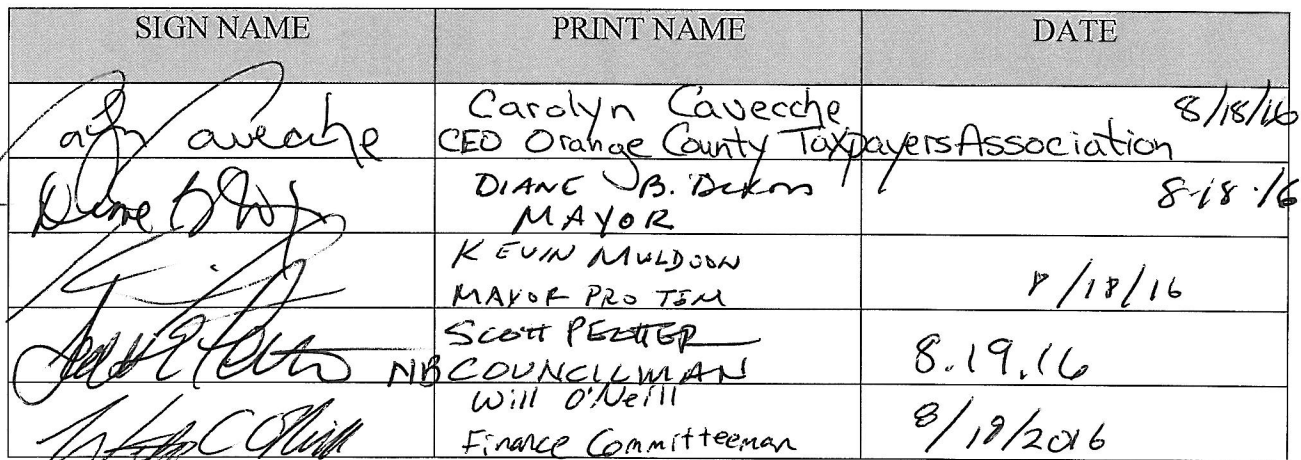 SIGN NAME PRINT NAME DATE
Carolyn Cavecche 8/18/16
Cavecche CEO Orange County Taxpayers Association
DIANE B. Dixon 8-18-16
MAYOR
KEVIN MULDOON
MAYOR PRO TEM 8/18/16
SCOTT PEOTTER
NB COUNCILMAN 8.19.16
Will O'Neill
Finance Committeeman 8/19/2016